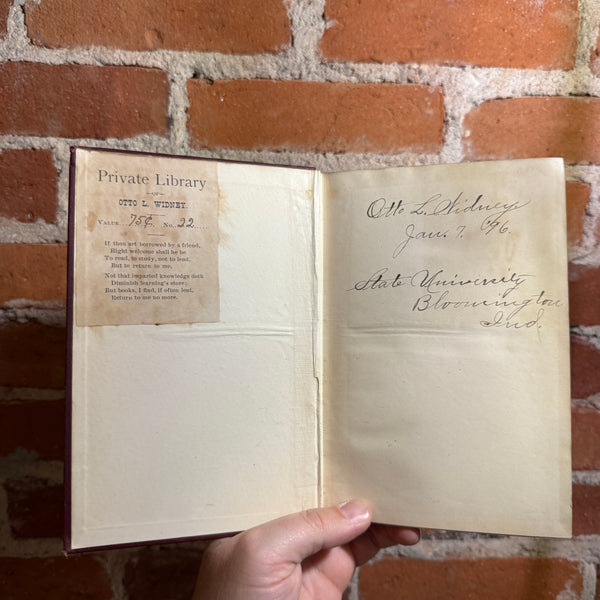 Private Library
—OF—
OTTO L. WIDNEY.
VALUE...75¢. No..22.....
If thou art borrowed by a friend,
Right welcome shall he be
To read, to study, not to lend,
But to return to me.
Not that imparted knowledge doth
Diminish learning's store;
But books, I find, if often lent,
Return to me no more.
Otto L. Widney
Jan. 7. '96.
State University
Bloomington
Ind.